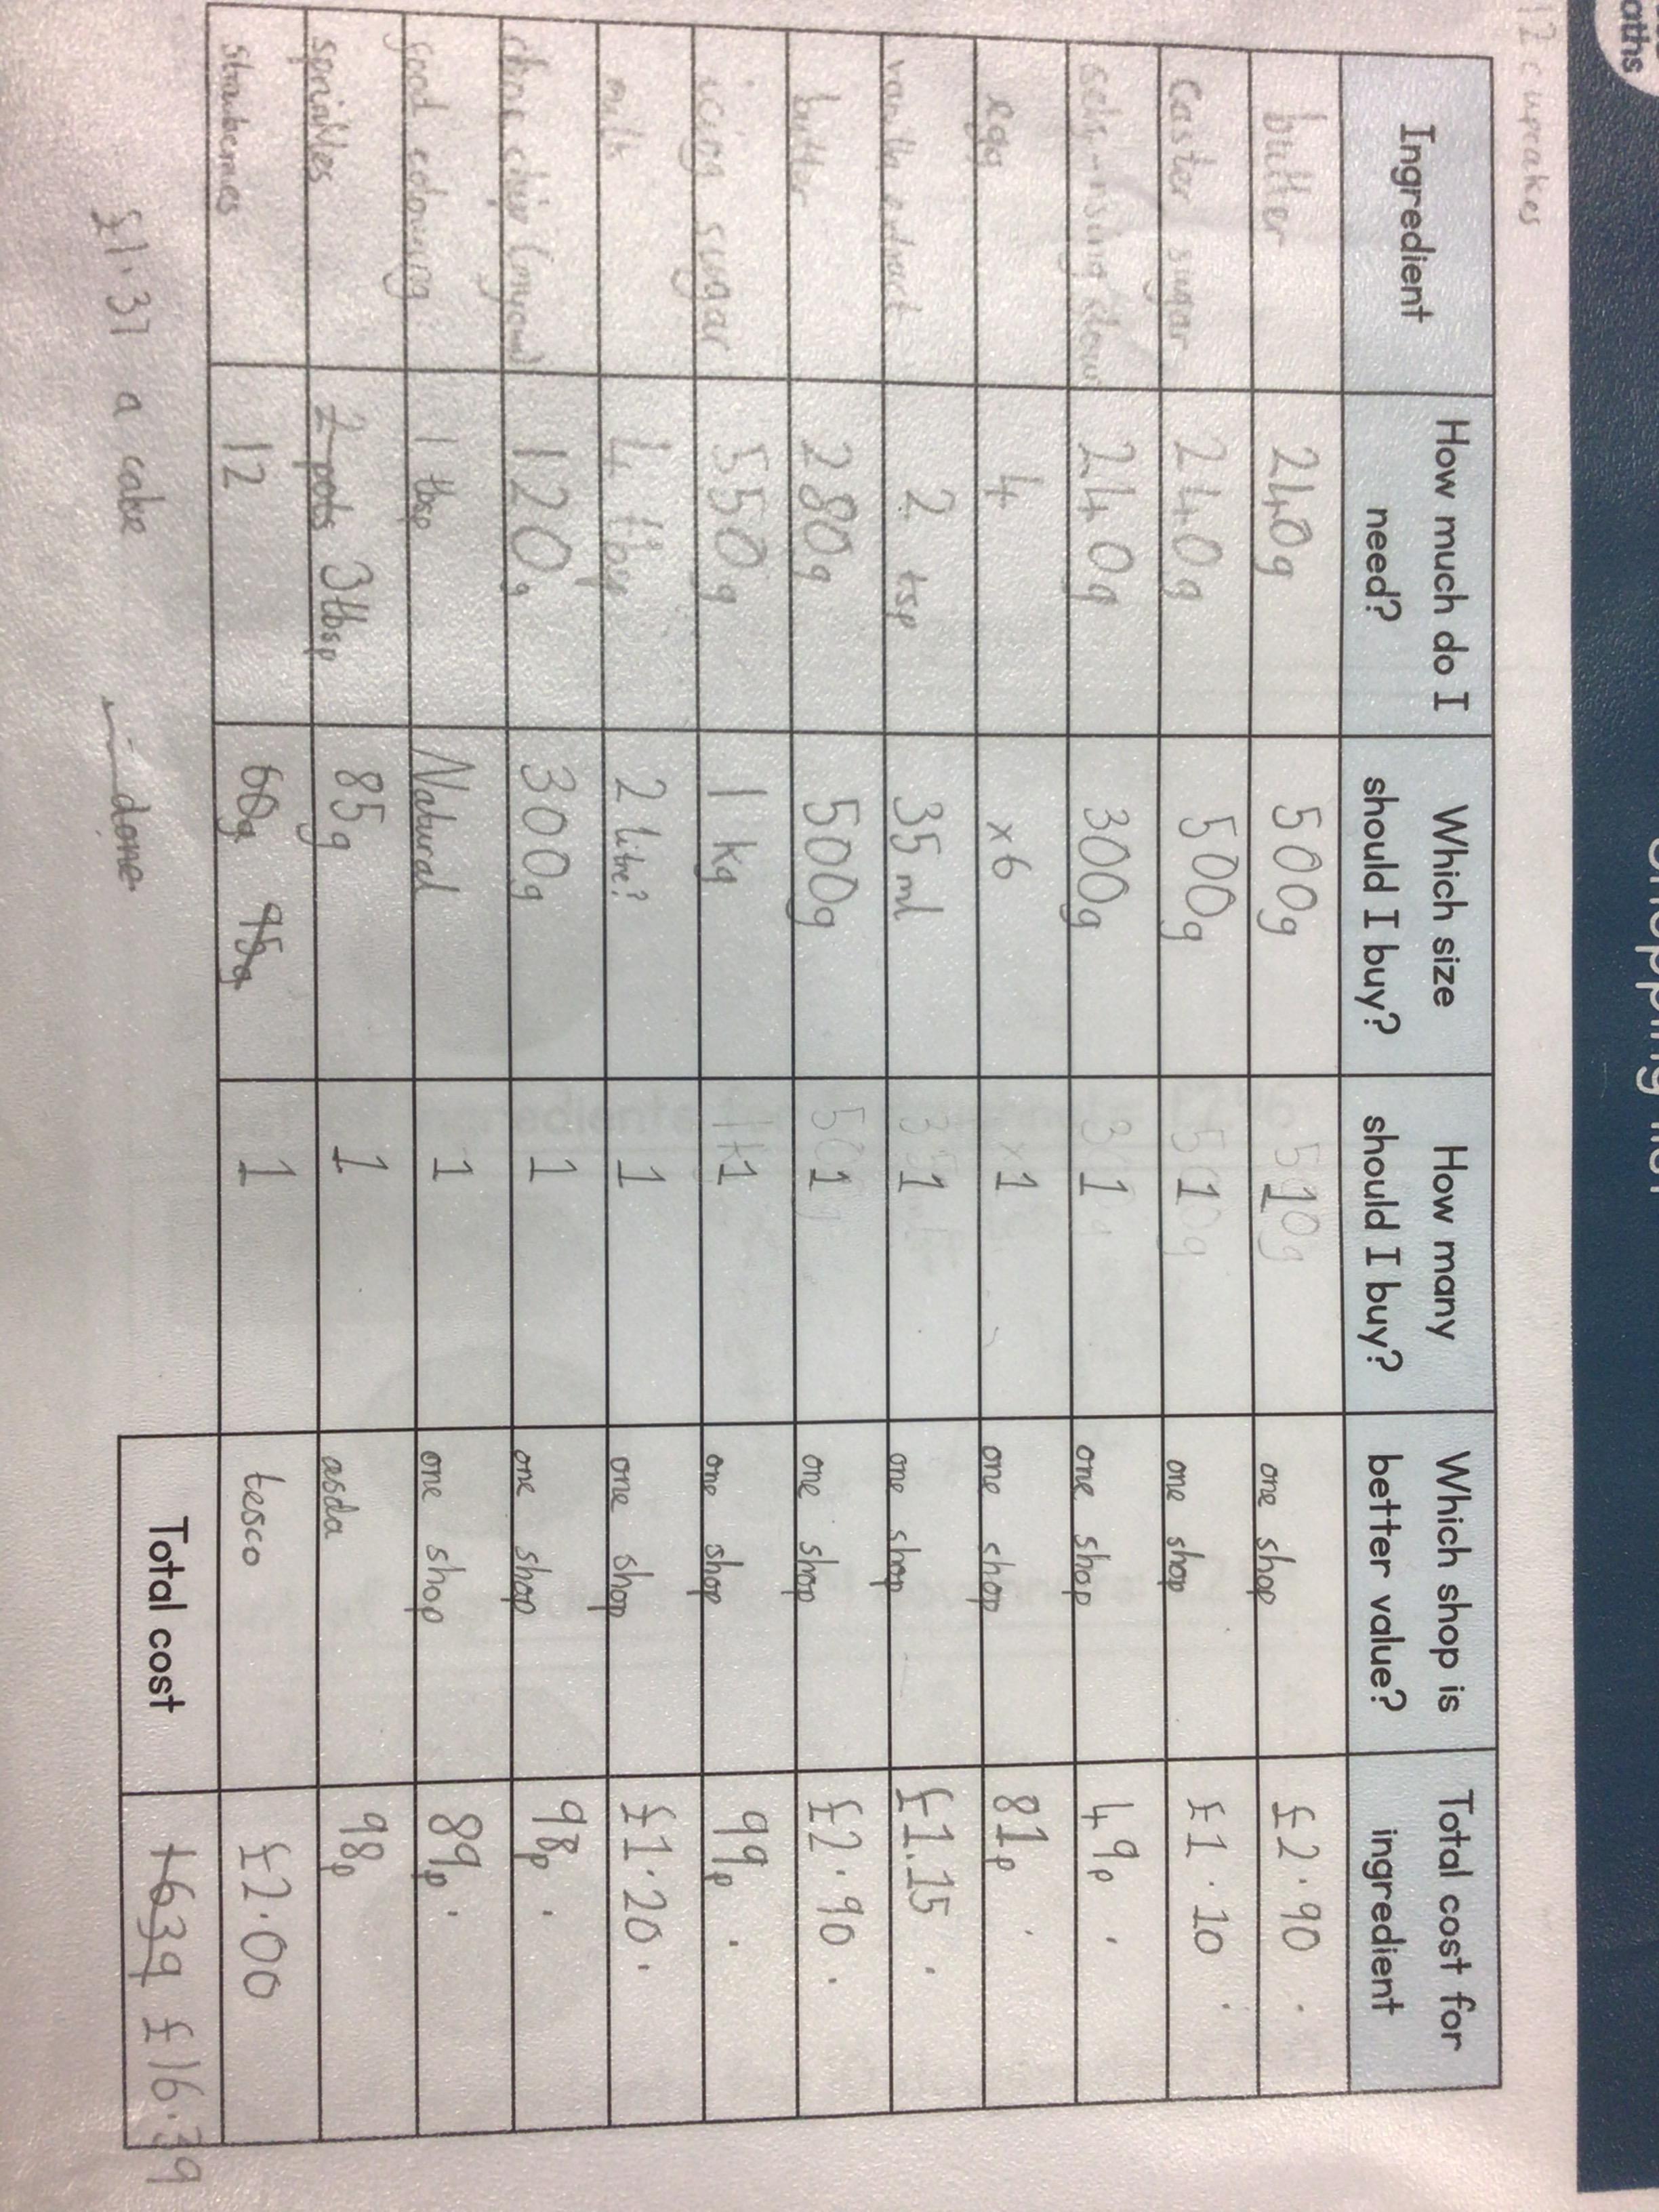 aths
Shopping list
12 cupcakes
Ingredient | How much do I need? | Which size should I buy? | How many should I buy? | Which shop is better value? | Total cost for ingredient
butter | 240g | 500g | 1 | one shop | £2.90
caster sugar | 240g | 500g | 1 | one shop | £1.10
self-rising flour | 240g | 300g | 1 | one shop | 49p
egg | 4 | x6 | 1 | one shop | 81p
vanilla extract | 2 tsp | 35ml | 1 | one shop | £1.15
butter | 280g | 500g | 1 | one shop | £2.90
icing sugar | 550g | 1kg | 1 | one shop | 99p
milk | 4 tbsp | 2 litre? | 1 | one shop | £1.20
choc chip | 120g | 300g | 1 | one shop | 98p
food colouring | 1 tbsp | Natural | 1 | one shop | 89p
sprinkles | 2 pots 3tbsp | 85g | 1 | asda | 98p
strawberries | 12 | 60g 95g | 1 | tesco | £2.00
Total cost | 1639 £16.39
£1.37 a cake
done